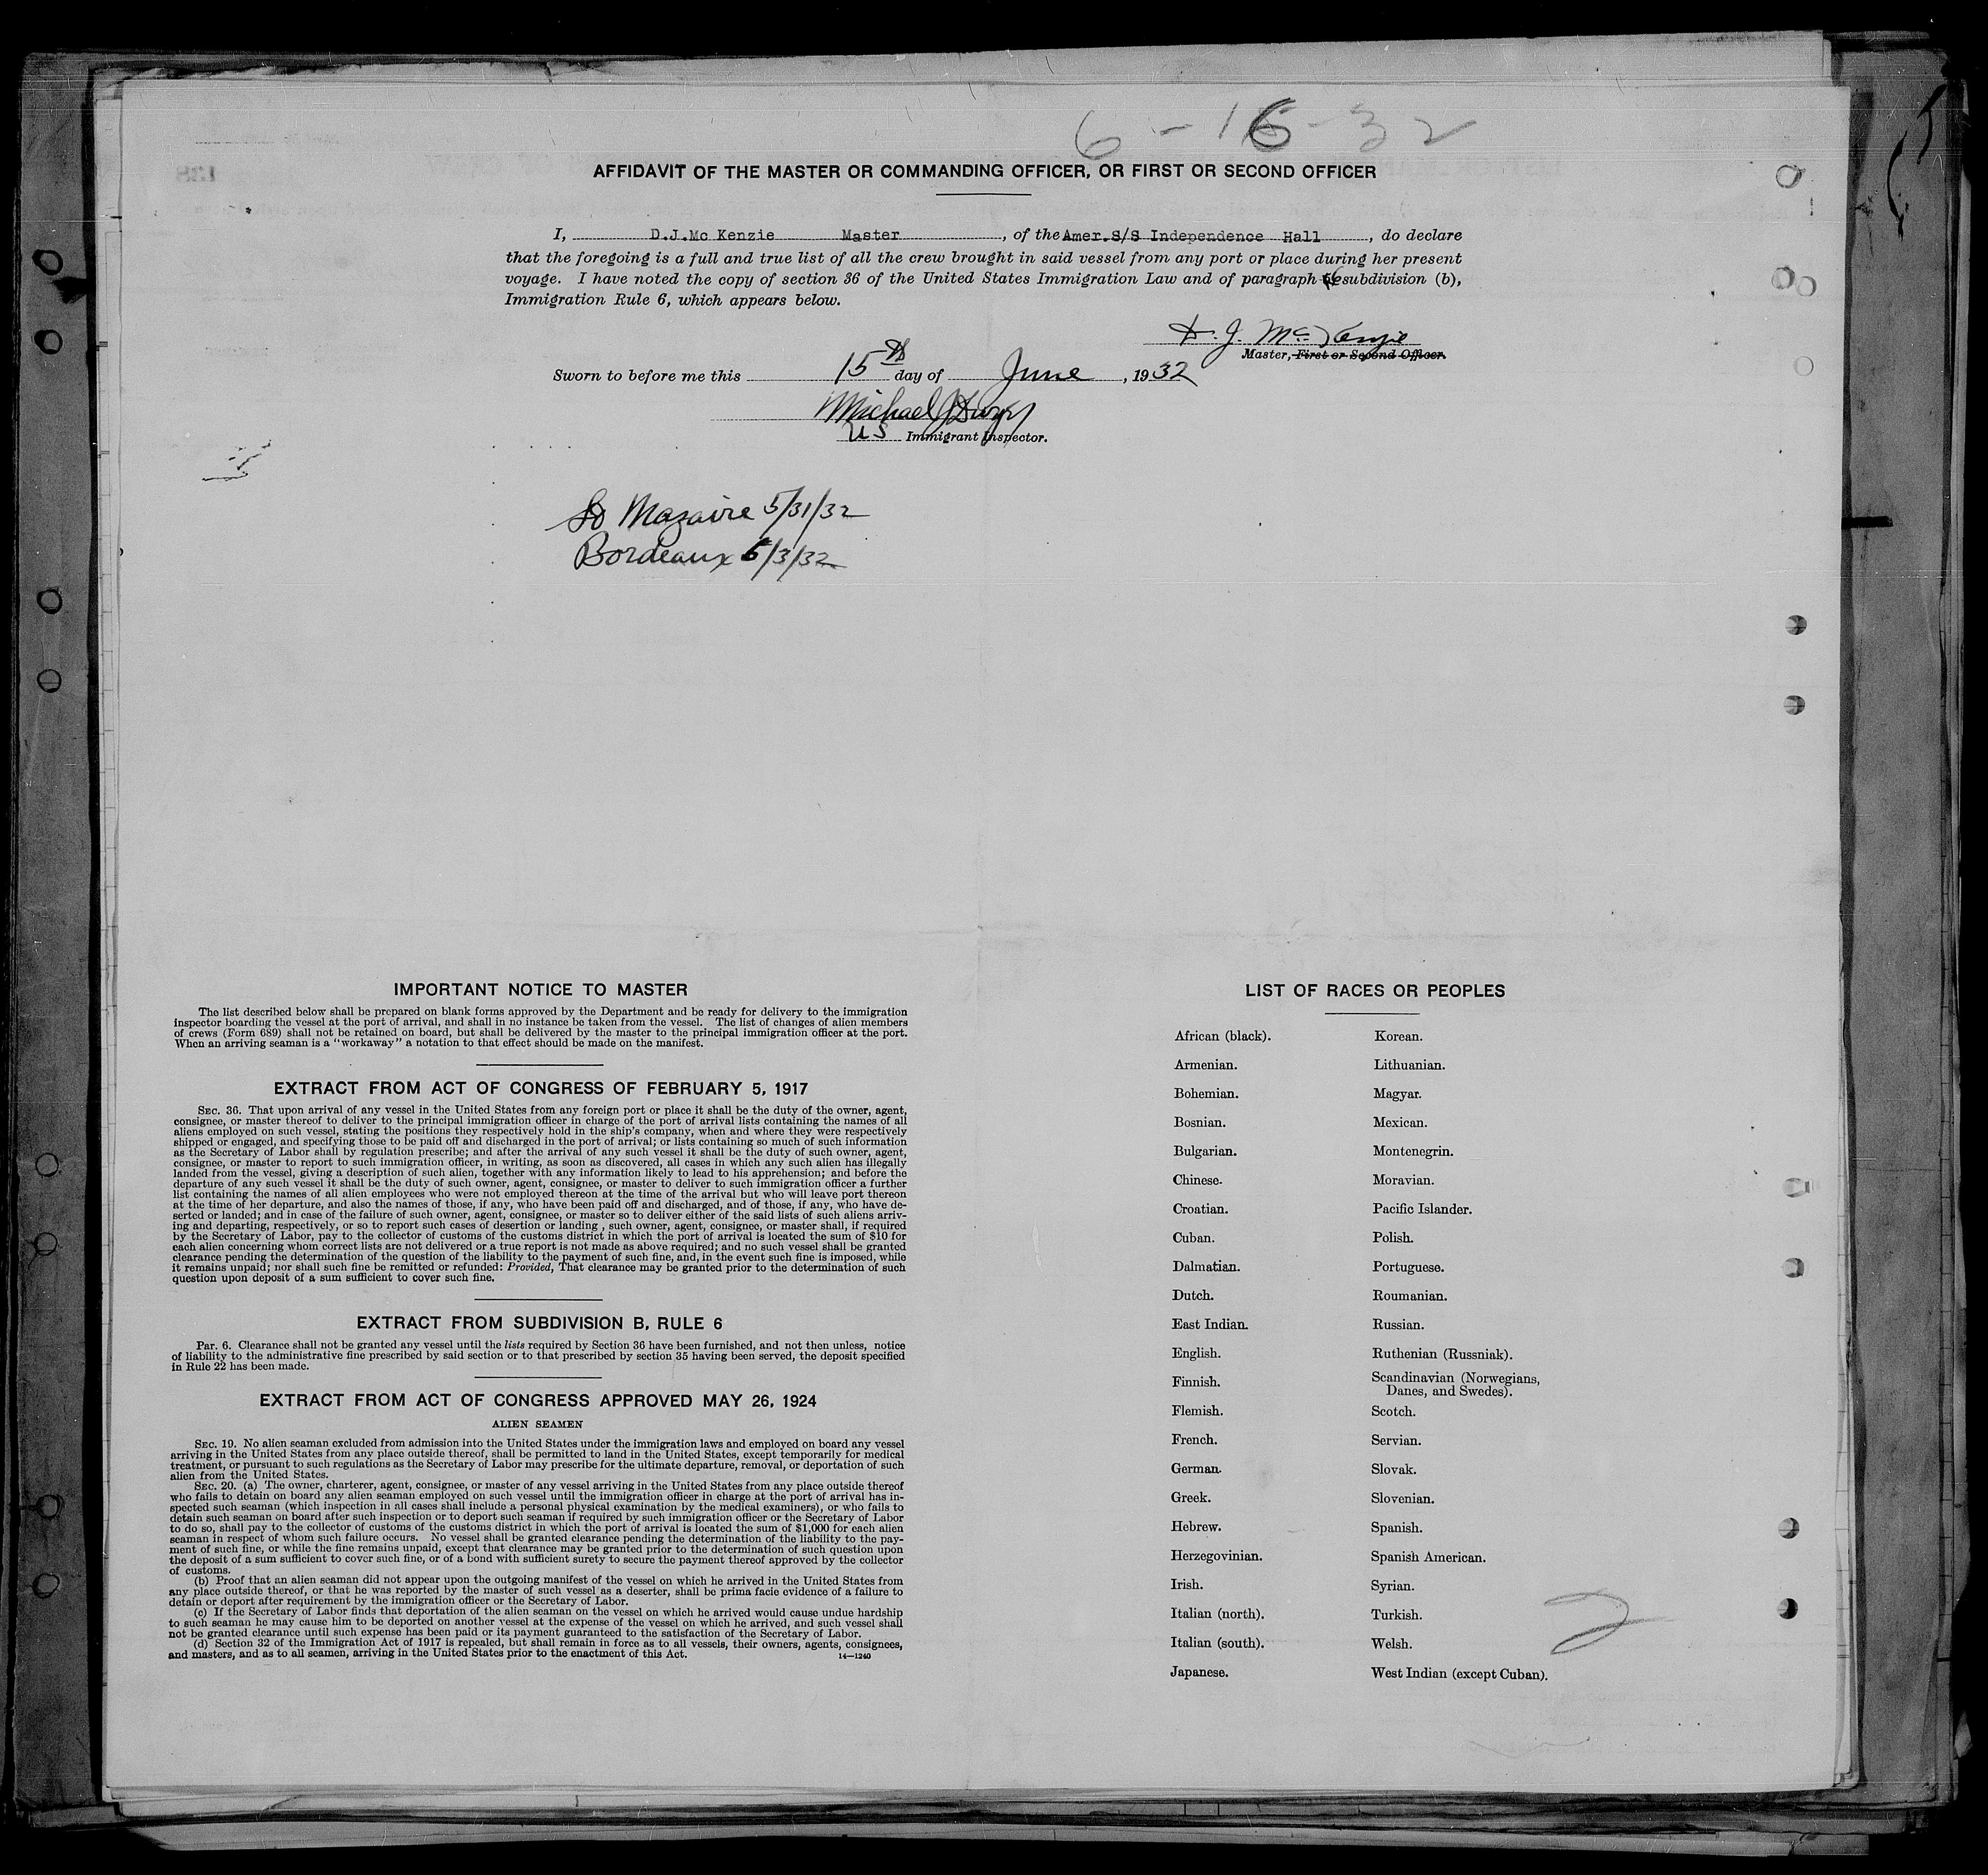 6-16-32
AFFIDAVIT OF THE MASTER OR COMMANDING OFFICER, OR FIRST OR SECOND OFFICER
I, D.J.Mc Kenzie Master, of the Amer. S/S Independence Hall, do declare
that the foregoing is a full and true list of all the crew brought in said vessel from any port or place during her present
voyage. I have noted the copy of section 36 of the United States Immigration Law and of paragraph 6 subdivision (b),
Immigration Rule 6, which appears below.
D. J. McKenzie
Master, First or Second Officer.
Sworn to before me this 15th day of June, 1932
Michael J
US Immigrant Inspector.
St Nazaire 5/31/32
Bordeaux 6/3/32
IMPORTANT NOTICE TO MASTER
The list described below shall be prepared on blank forms approved by the Department and be ready for delivery to the immigration
inspector boarding the vessel at the port of arrival, and shall in no instance be taken from the vessel. The list of changes of alien members
of crews (Form 689) shall not be retained on board, but shall be delivered by the master to the principal immigration officer at the port.
When an arriving seaman is a "workaway" a notation to that effect should be made on the manifest.
EXTRACT FROM ACT OF CONGRESS OF FEBRUARY 5, 1917
SEC. 36. That upon arrival of any vessel in the United States from any foreign port or place it shall be the duty of the owner, agent,
consignee, or master thereof to deliver to the principal immigration officer in charge of the port of arrival lists containing the names of all
aliens employed on such vessel, stating the positions they respectively hold in the ship's company, when and where they were respectively
shipped or engaged, and specifying those to be paid off and discharged in the port of arrival; or lists containing so much of such information
as the Secretary of Labor shall by regulation prescribe; and after the arrival of any such vessel it shall be the duty of such owner, agent,
consignee, or master to report to such immigration officer, in writing, as soon as discovered, all cases in which any such alien has illegally
landed from the vessel, giving a description of such alien, together with any information likely to lead to his apprehension; and before the
departure of any such vessel it shall be the duty of such owner, agent, consignee, or master to deliver to such immigration officer a further
list containing the names of all alien employees who were not employed thereon at the time of the arrival but who will leave port thereon
at the time of her departure, and also the names of those, if any, who have been paid off and discharged, and of those, if any, who have de-
serted or landed; and in case of the failure of such owner, agent, consignee, or master so to deliver either of the said lists of such aliens arriv-
ing and departing, respectively, or so to report such cases of desertion or landing , such owner, agent, consignee, or master shall, if required
by the Secretary of Labor, pay to the collector of customs of the customs district in which the port of arrival is located the sum of $10 for
each alien concerning whom correct lists are not delivered or a true report is not made as above required; and no such vessel shall be granted
clearance pending the determination of the question of the liability to the payment of such fine, and, in the event such fine is imposed, while
it remains unpaid; nor shall such fine be remitted or refunded: Provided, That clearance may be granted prior to the determination of such
question upon deposit of a sum sufficient to cover such fine.
EXTRACT FROM SUBDIVISION B, RULE 6
Par. 6. Clearance shall not be granted any vessel until the lists required by Section 36 have been furnished, and not then unless, notice
of liability to the administrative fine prescribed by said section or to that prescribed by section 35 having been served, the deposit specified
in Rule 22 has been made.
EXTRACT FROM ACT OF CONGRESS APPROVED MAY 26, 1924
ALIEN SEAMEN
SEC. 19. No alien seaman excluded from admission into the United States under the immigration laws and employed on board any vessel
arriving in the United States from any place outside thereof, shall be permitted to land in the United States, except temporarily for medical
treatment, or pursuant to such regulations as the Secretary of Labor may prescribe for the ultimate departure, removal, or deportation of such
alien from the United States.
SEC. 20. (a) The owner, charterer, agent, consignee, or master of any vessel arriving in the United States from any place outside thereof
who fails to detain on board any alien seaman employed on such vessel until the immigration officer in charge at the port of arrival has in-
spected such seaman (which inspection in all cases shall include a personal physical examination by the medical examiners), or who fails to
detain such seaman on board after such inspection or to deport such seaman if required by such immigration officer or the Secretary of Labor
to do so, shall pay to the collector of customs of the customs district in which the port of arrival is located the sum of $1,000 for each alien
seaman in respect of whom such failure occurs. No vessel shall be granted clearance pending the determination of the liability to the pay-
ment of such fine, or while the fine remains unpaid, except that clearance may be granted prior to the determination of such question upon
the deposit of a sum sufficient to cover such fine, or of a bond with sufficient surety to secure the payment thereof approved by the collector
of customs.
(b) Proof that an alien seaman did not appear upon the outgoing manifest of the vessel on which he arrived in the United States from
any place outside thereof, or that he was reported by the master of such vessel as a deserter, shall be prima facie evidence of a failure to
detain or deport after requirement by the immigration officer or the Secretary of Labor.
(c) If the Secretary of Labor finds that deportation of the alien seaman on the vessel on which he arrived would cause undue hardship
to such seaman he may cause him to be deported on another vessel at the expense of the vessel on which he arrived, and such vessel shall
not be granted clearance until such expense has been paid or its payment guaranteed to the satisfaction of the Secretary of Labor.
(d) Section 32 of the Immigration Act of 1917 is repealed, but shall remain in force as to all vessels, their owners, agents, consignees,
and masters, and as to all seamen, arriving in the United States prior to the enactment of this Act.
14—1240
LIST OF RACES OR PEOPLES
African (black).
Armenian.
Bohemian.
Bosnian.
Bulgarian.
Chinese.
Croatian.
Cuban.
Dalmatian.
Dutch.
East Indian.
English.
Finnish.
Flemish.
French.
German.
Greek.
Hebrew.
Herzegovinian.
Irish.
Italian (north).
Italian (south).
Japanese.
Korean.
Lithuanian.
Magyar.
Mexican.
Montenegrin.
Moravian.
Pacific Islander.
Polish.
Portuguese.
Roumanian.
Russian.
Ruthenian (Russniak).
Scandinavian (Norwegians,
Danes, and Swedes).
Scotch.
Servian.
Slovak.
Slovenian.
Spanish.
Spanish American.
Syrian.
Turkish.
Welsh.
West Indian (except Cuban).
2